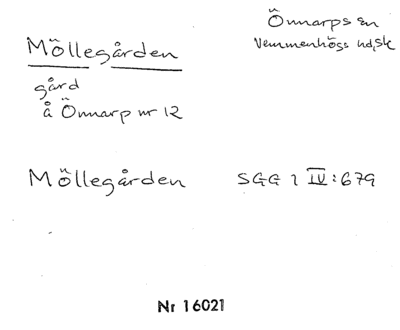 Önnarps sn
Vemmenhögs hd, Sk
Möllegården
gård
å Önnarp nr 12
Möllegården SGG 1 IV:679
Nr 16021